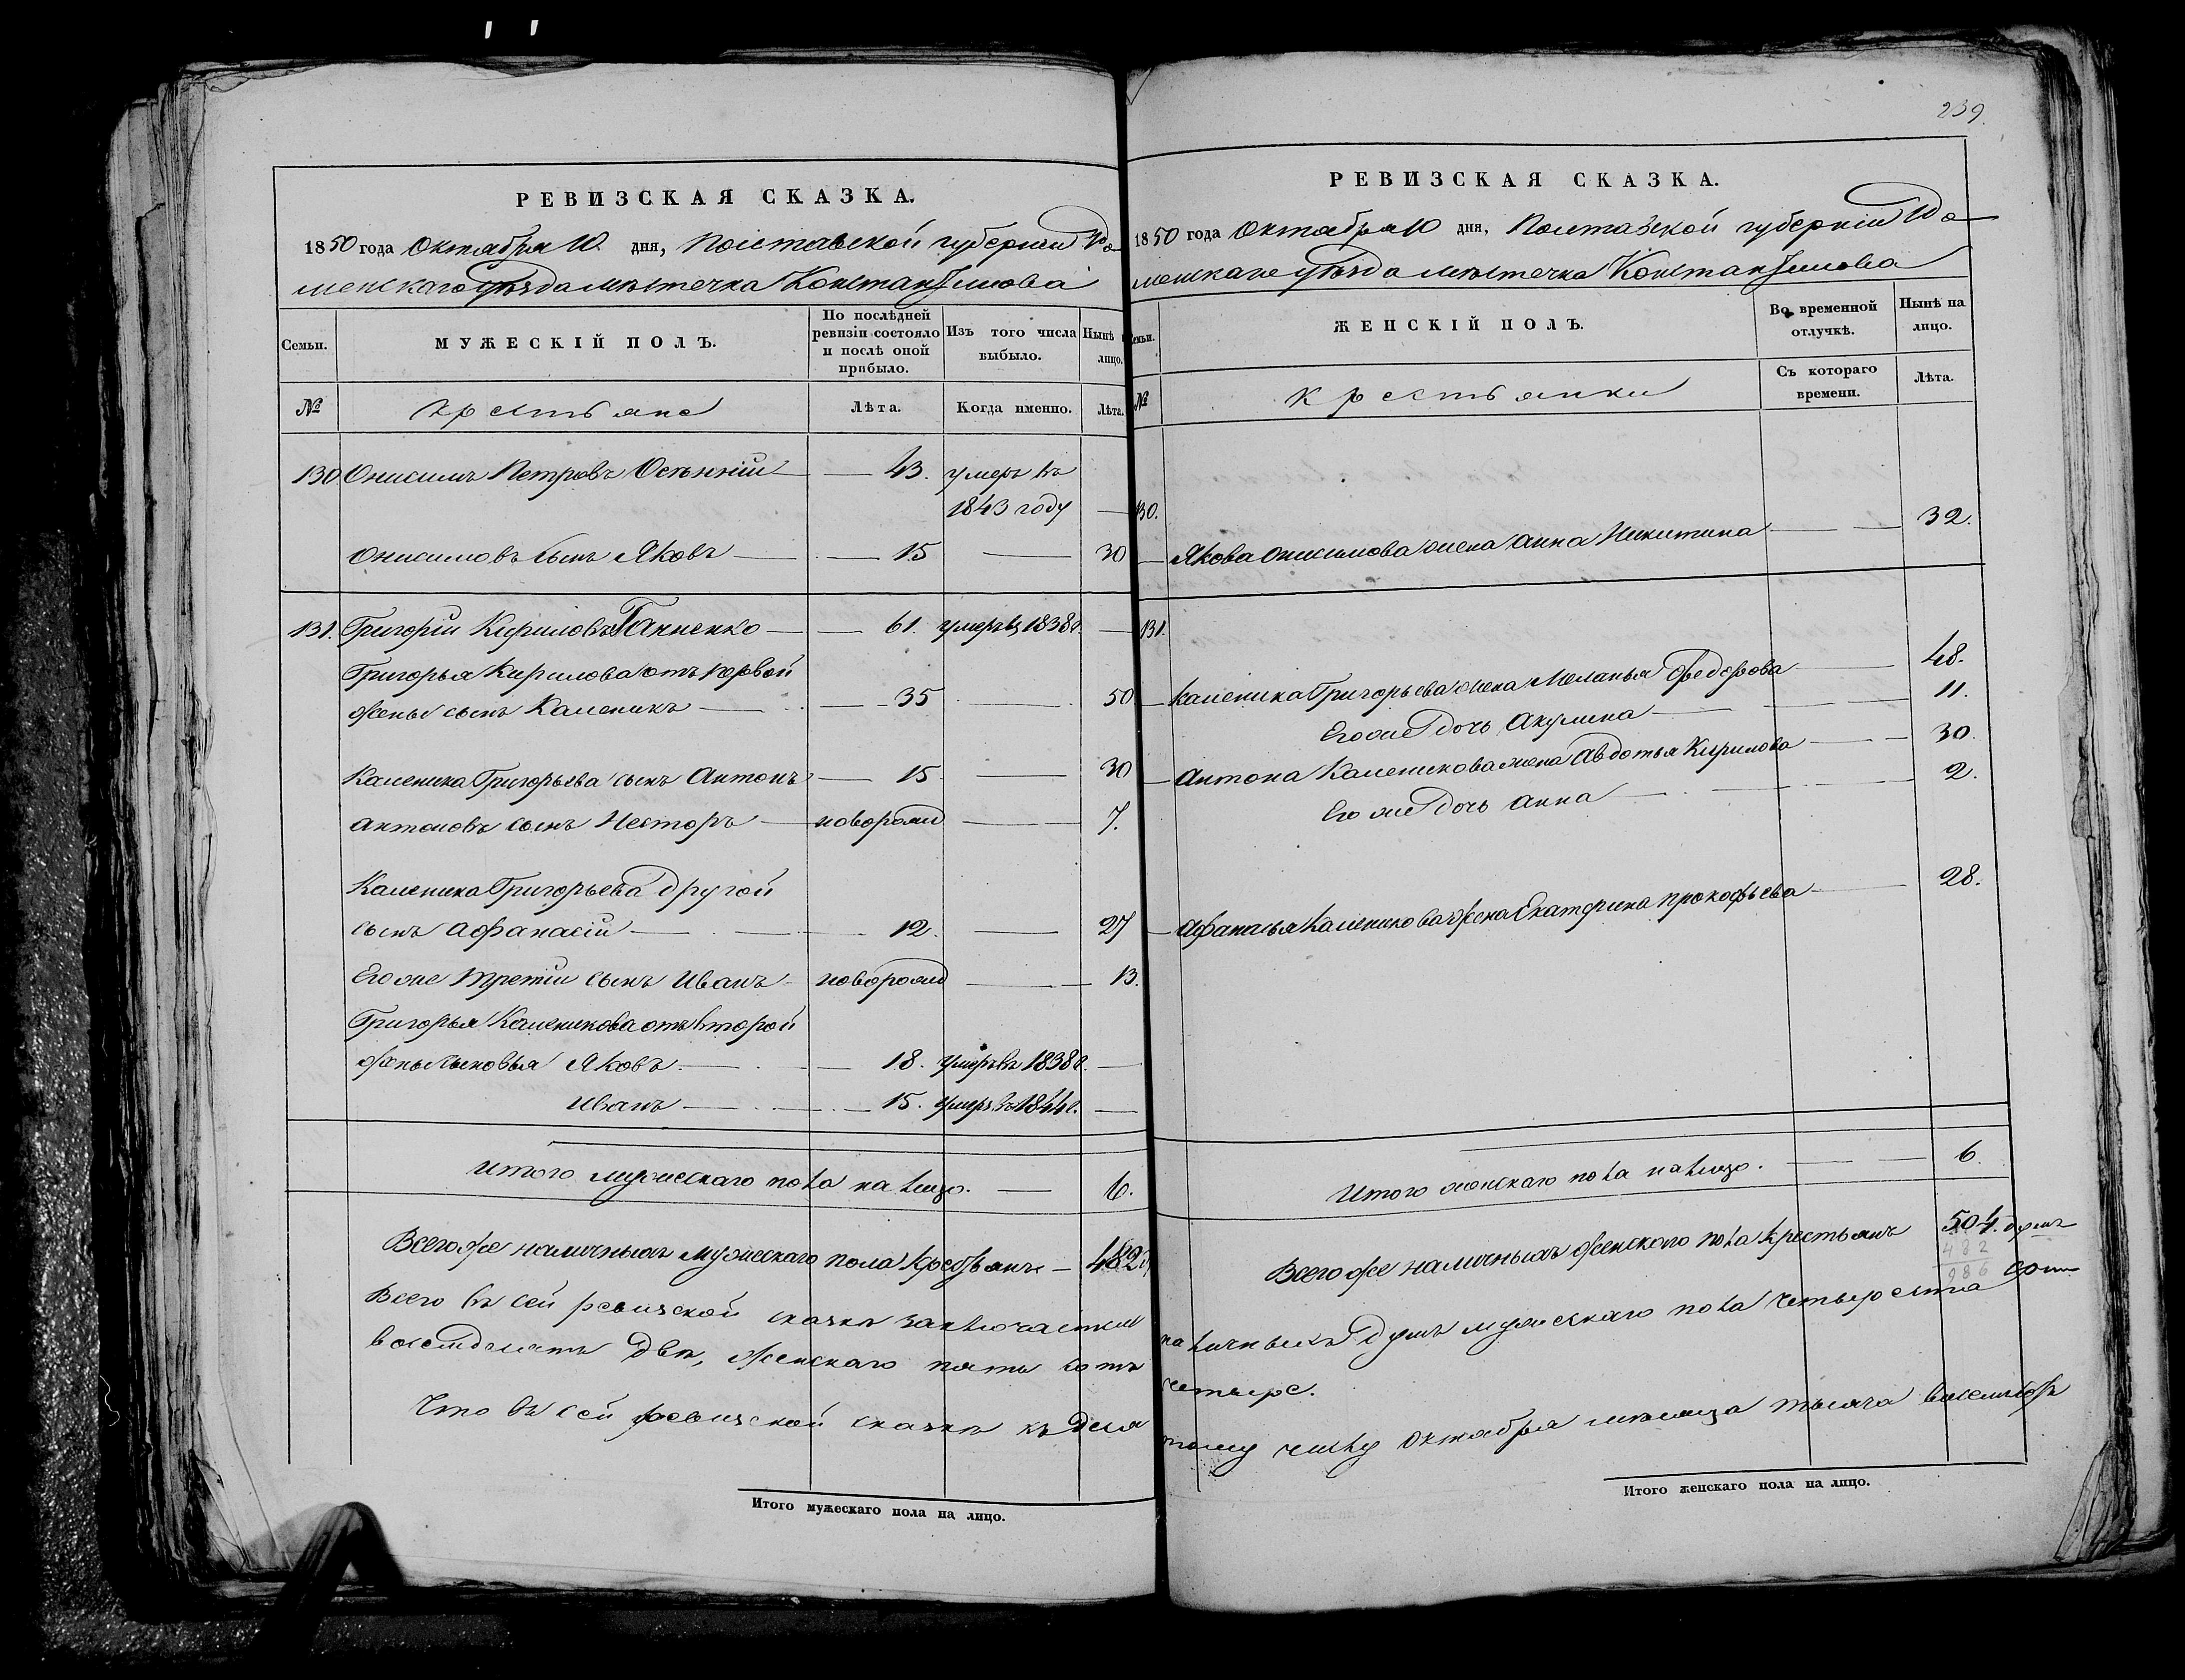 РЕВИЗСКАЯ СКАЗКА.
1850 года Октября 10. дня, Полтавской губерніи Ро
менскаго уѣзда мѣстечка Константинова
Семьи.
МУЖЕСКІЙ ПОЛЪ.
По послѣдней ревизіи состояло и послѣ оной прибыло.
Изъ того числа выбыло.
Нынѣ на лицо.
№
крестьяне
Лѣта.
Когда именно.
Лѣта.
130 Онисимъ Петровъ Осѣнній — 43. умеръ въ
1843 году —
Онисимовъ сынъ Яковъ — 15 — 30
131. Григорій Кириловъ Ганненко — 61. умеръ въ 1838 г. —
Григорья Кирилова отъ первой
жены сынъ Каленикъ — 35 50
Каленика Григорьева сынъ Антонъ — 15 — 30
Антоновъ сынъ Несторъ — новорожд — 7.
Каленика Григорьева другой
сынъ Афанасій — 12. — 27
Его же третій сынъ Иванъ новорожд — 13.
Григорья Каленикова отъ второй
жены сыновья Яковъ. — 18. умеръ въ 1838 г. —
Иванъ — 15. умеръ въ 1844 г. —
Итого мужескаго пола на лицо. — 6.
Всего же наличныхъ мужескаго пола крестьянъ — 482
Всего въ сей ревизской сказкѣ заключается
восемдесятъ двѣ, женскаго пять сотъ
Что въ сей ревизской сказкѣ къ деся
Итого мужескаго пола на лицо.
239.
РЕВИЗСКАЯ СКАЗКА.
1850 года Октября 10 дня, Полтавской губерніи Ро
менскаго уѣзда мѣстечка Константинова
Семьи.
ЖЕНСКІЙ ПОЛЪ.
Во временной отлучкѣ.
Нынѣ на лицо.
№
крестьянки
Съ котораго времени.
Лѣта.
130.
Якова Онисимова жена Анна Никитина — 32.
131.
Каленика Григорьева жена Меланья Федорова — 48.
Его же дочь Акулина — 11.
Антона Каленикова жена Авдотья Кирилова — 30.
Его же дочь Анна — 2.
Афанасья Каленикова жена Екатерина Прокофьева — 28.
Итого женскаго пола на лицо. — 6.
Всего же наличныхъ женскаго пола крестьянъ 504. душъ
482
986
наличныхъ душъ мужескаго пола четыреста
четыре.
тому числу Октября мѣсяца тысяча восемьсотъ
Итого женскаго пола на лицо.